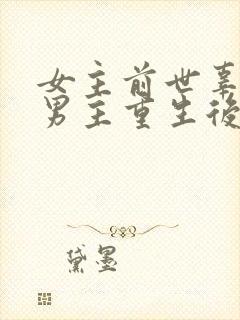 女主前世辜
男主重生後
黛墨